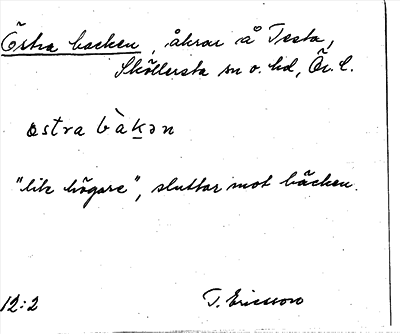 Östra backen, åkrar å Testa,
Sköllersta sn o. hd, Ör. l.
østra bàkən
"lite högare", sluttar mot bäcken.
12:2 T. Ericsson